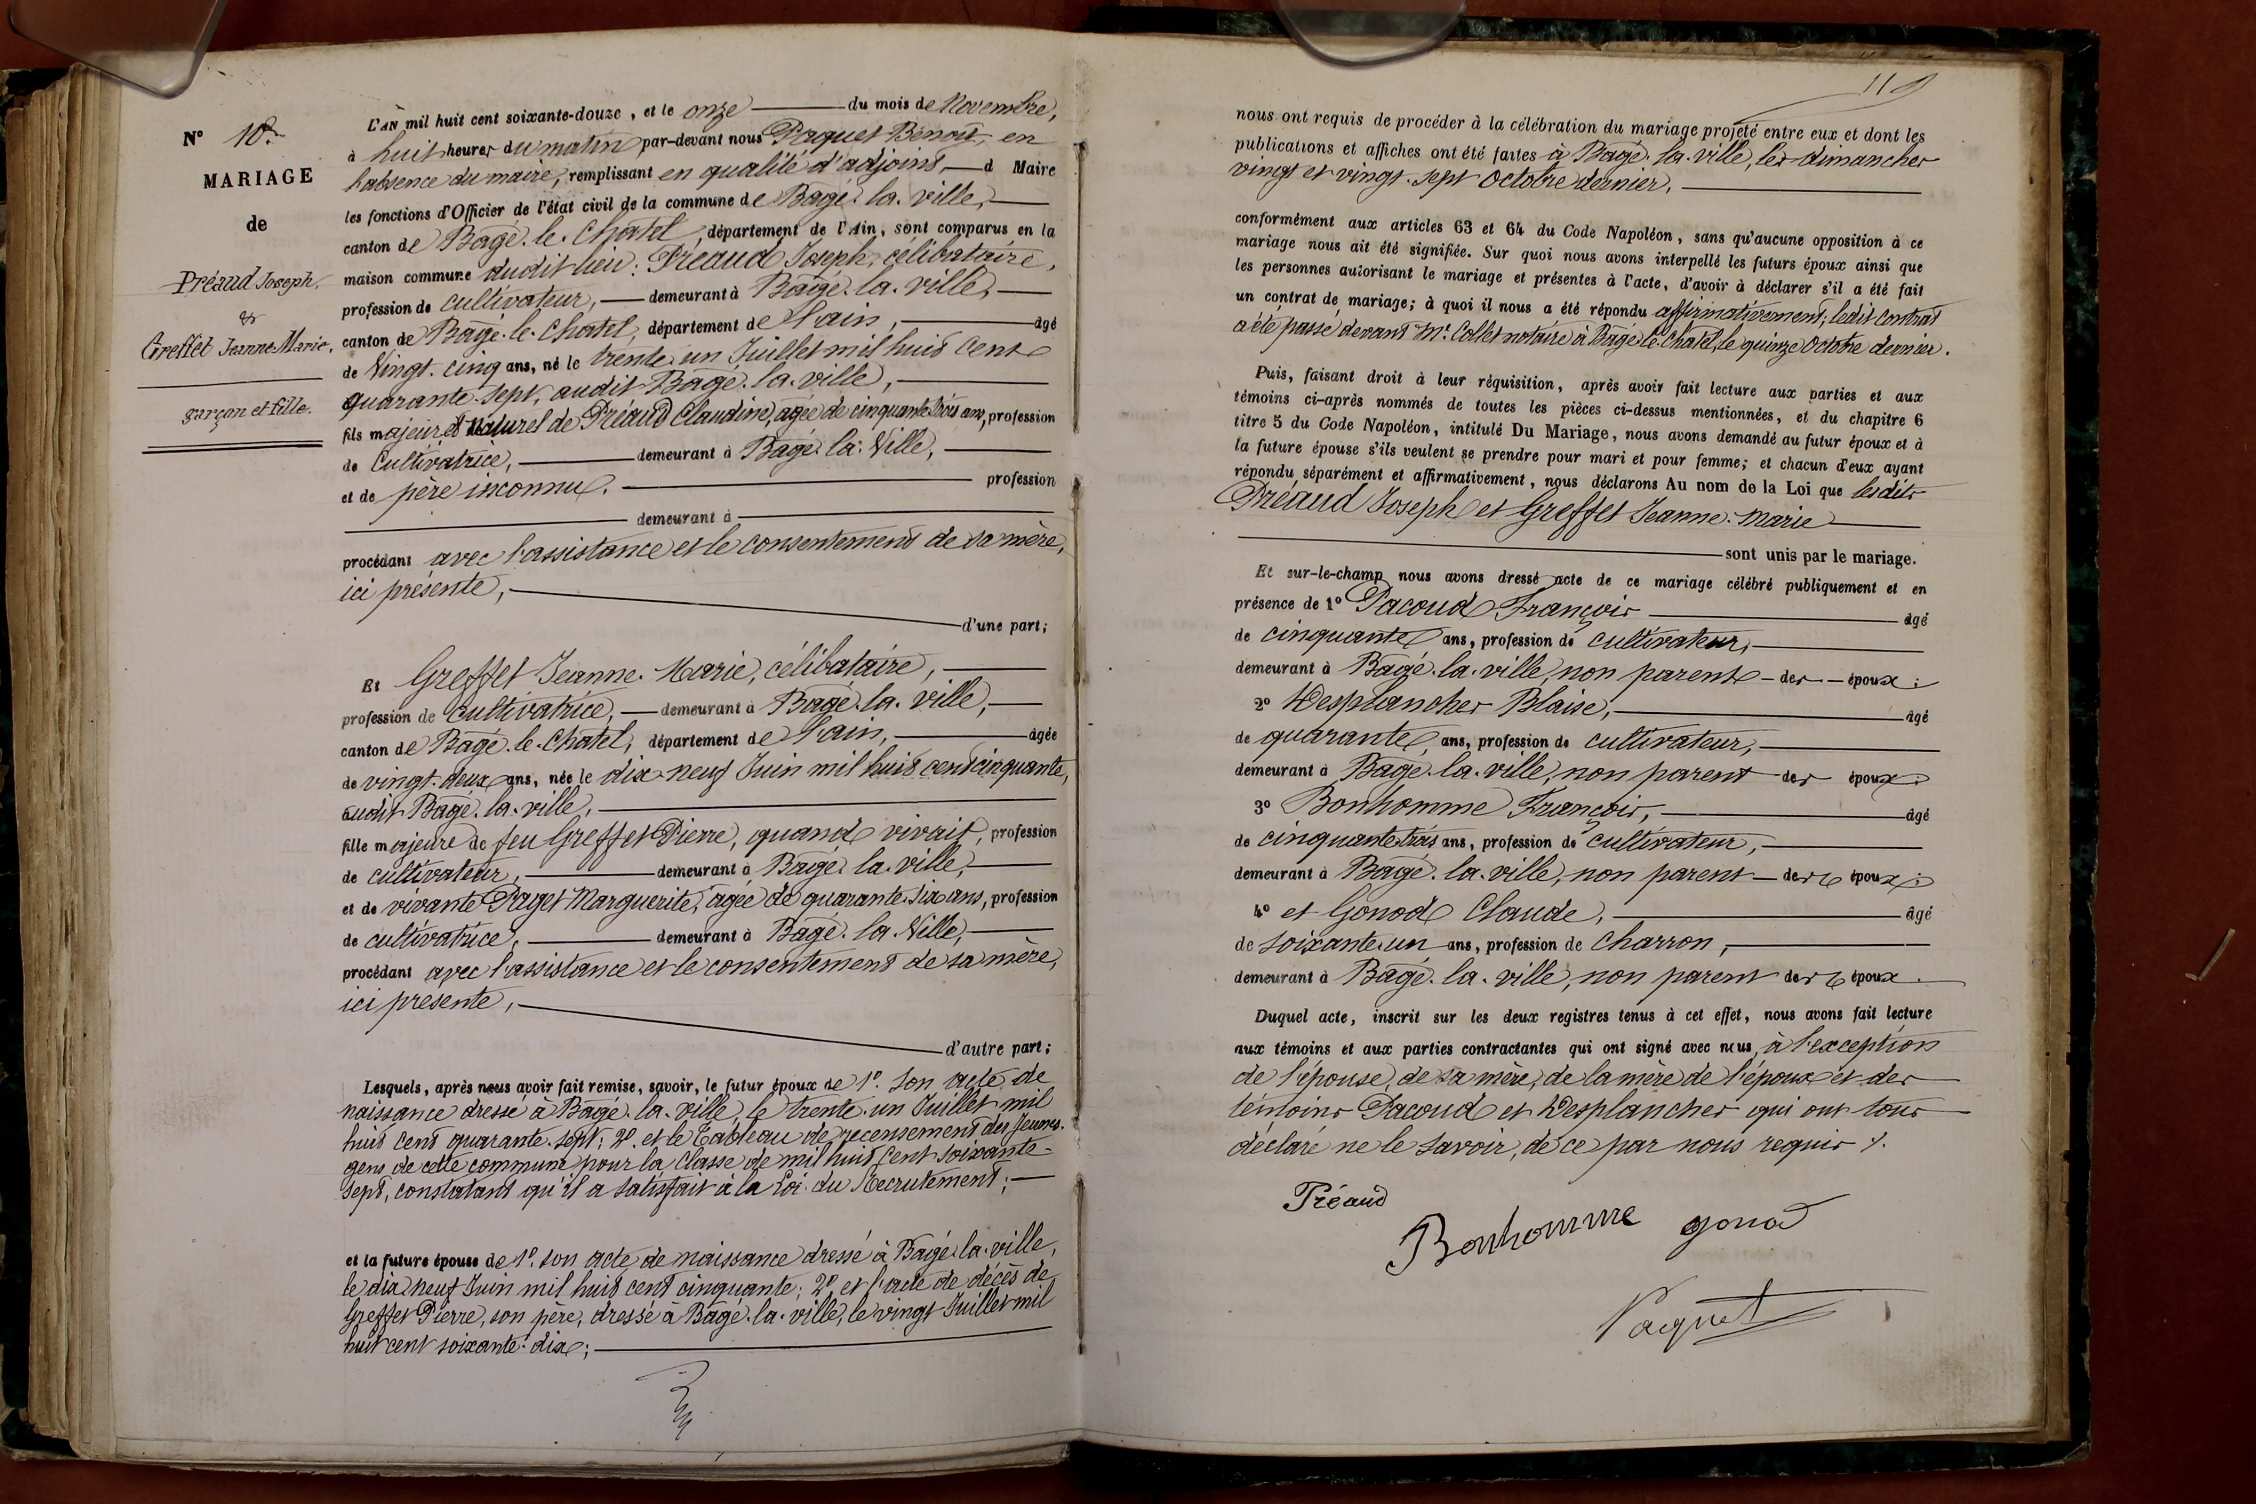 N° 18.
MARIAGE
de
Préaud Joseph.
&
Greffet Jeanne-Marie.
garçon et fille.
L'AN mil huit cent soixante-douze, et le onze du mois de Novembre,
à huit heures du matin par-devant nous Paquet Benoit, en
l'absence du maire, remplissant en qualité d'adjoint, d Maire
les fonctions d'Officier de l'état civil de la commune de Bagé-la-ville,
canton de Bagé-le-Chatel, département de l'Ain, sont comparus en la
maison commune dudit lieu: Préaud Joseph, célibataire,
profession de cultivateur, demeurant à Bagé-la-ville,
canton de Bagé-le-Chatel, département de l'ain, âgé
de Vingt-cinq ans, né le trente-un Juillet mil huit cent
quarante-sept, audit Bagé-la-ville,
fils majeur et naturel de Préaud Claudine, agée de cinquante trois ans, profession
de Cultivatrice, demeurant à Bagé-la-Ville,
et de père inconnu. profession
demeurant à
procédant avec l'assistance et le consentement de sa mère,
ici présente,
d'une part;
Et Greffet Jeanne-Marie, célibataire,
profession de cultivatrice, demeurant à Bagé-la-ville,
canton de Bagé-le-Chatel, département de l'ain, âgée
de vingt-deux ans, née le dix-neuf Juin mil huit cent cinquante,
audit Bagé-la-ville,
fille majeure de feu Greffet Pierre, quand vivait, profession
de cultivateur, demeurant à Bagé-la-ville,
et de vivante Paget Marguerite, agée de quarante-six ans, profession
de cultivatrice, demeurant à Bagé-la-Ville,
procédant avec l'assistance et le consentement de sa mère,
ici présente,
d'autre part;
Lesquels, après nous avoir fait remise, savoir, le futur époux de 1°. son acte de
naissance dressé à Bagé-la-ville, le trente-un Juillet mil
huit cent quarante-sept; 2°. et le Tableau de recensement des Jeunes-
gens de cette commune pour la classe de mil huit cent soixante-
sept, constatant qu'il a satisfait à la Loi du Recrutement;
et la future épouse de 1°. son acte de naissance dressé à Bagé-la-ville,
le dix-neuf Juin mil huit cent cinquante; 2°. et l'acte de décès de
Greffet Pierre, son père, dressé à Bagé-la-ville, le vingt Juillet mil
huit cent soixante-dix;
119
nous ont requis de procéder à la célébration du mariage projeté entre eux et dont les
publications et affiches ont été faites à Bagé-la-ville, les dimanches
vingt et vingt-sept Octobre dernier,
conformément aux articles 63 et 64 du Code Napoléon, sans qu'aucune opposition à ce
mariage nous ait été signifiée. Sur quoi nous avons interpellé les futurs époux ainsi que
les personnes autorisant le mariage et présentes à l'acte, d'avoir à déclarer s'il a été fait
un contrat de mariage; à quoi il nous a été répondu affirmativement; ledit contrat
a été passé devant Mr. Collet notaire à Bagé-le-Chatel, le quinze Octobre dernier.
Puis, faisant droit à leur réquisition, après avoir fait lecture aux parties et aux
témoins ci-après nommés de toutes les pièces ci-dessus mentionnées, et du chapitre 6
titre 5 du Code Napoléon, intitulé Du Mariage, nous avons demandé au futur époux et à
la future épouse s'ils veulent se prendre pour mari et pour femme; et chacun d'eux ayant
répondu séparément et affirmativement, nous déclarons Au nom de la Loi que lesdits
Préaud Joseph et Greffet Jeanne-Marie
sont unis par le mariage.
Et sur-le-champ nous avons dressé acte de ce mariage célébré publiquement et en
présence de 1° Pacoud François âgé
de cinquante ans, profession de cultivateur,
demeurant à Bagé-la-ville, non parent des époux;
2° Desplanches Blaise, âgé
de quarante ans, profession de cultivateur,
demeurant à Bagé-la-ville, non parent des époux;
3° Bonhomme François, âgé
de cinquante-trois ans, profession de cultivateur,
demeurant à Bagé-la-ville, non parent des époux;
4° et Gonod Claude, âgé
de soixante-un ans, profession de charron,
demeurant à Bagé-la-ville, non parent des époux.
Duquel acte, inscrit sur les deux registres tenus à cet effet, nous avons fait lecture
aux témoins et aux parties contractantes qui ont signé avec nous, à l'exception
de l'épouse, de sa mère, de la mère de l'époux et des
témoins Pacoud et Desplanches qui ont tous
déclaré ne le savoir, de ce par nous requis.
Préaud
Bonhomme gonod
Paquet